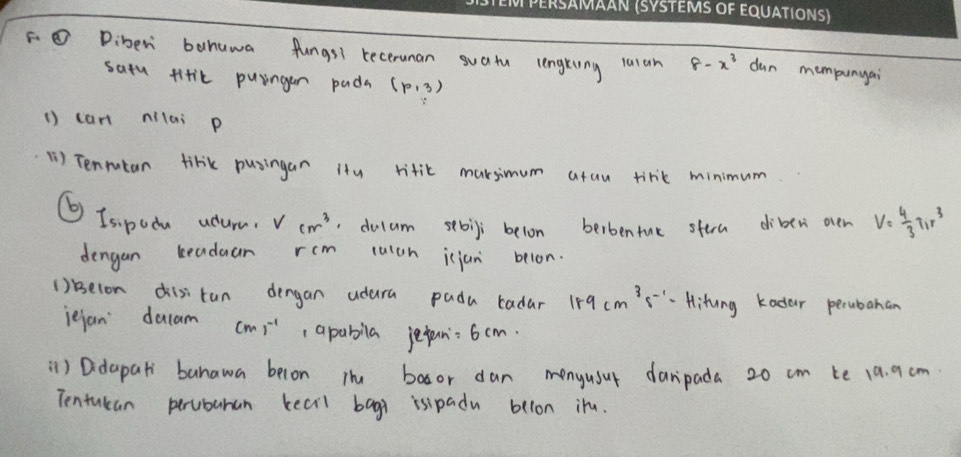 SISTEM PERSAMAAN (SYSTEMS OF EQUATIONS)
5. ⓐ Diberi bahawa fungsi kecerunan suatu lengkung ialah 8 - x³ dan mempunyai
satu titik pusingan pada (p, 3)
i) cari nilai p
ii) Tentukan titik pusingan itu titik maksimum atau titik minimum.
ⓑ Isipadu udara, V cm³, dalam sebiji belon berbentuk sfera diberi oleh V = 4/3 πr³
dengan keadaan r cm ialah jejari belon.
i) Belon diisikan dengan udara pada kadar 189 cm³ s⁻¹. Hitung kadar perubahan
jejari dalam cm s⁻¹, apabila jejari = 6 cm.
ii) Didapati bahawa belon itu bocor dan menyusut daripada 20 cm ke 19.9 cm.
Tentukan perubahan kecil bagi isipadu belon itu.